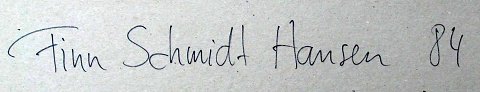 Finn Schmidt Hansen 84